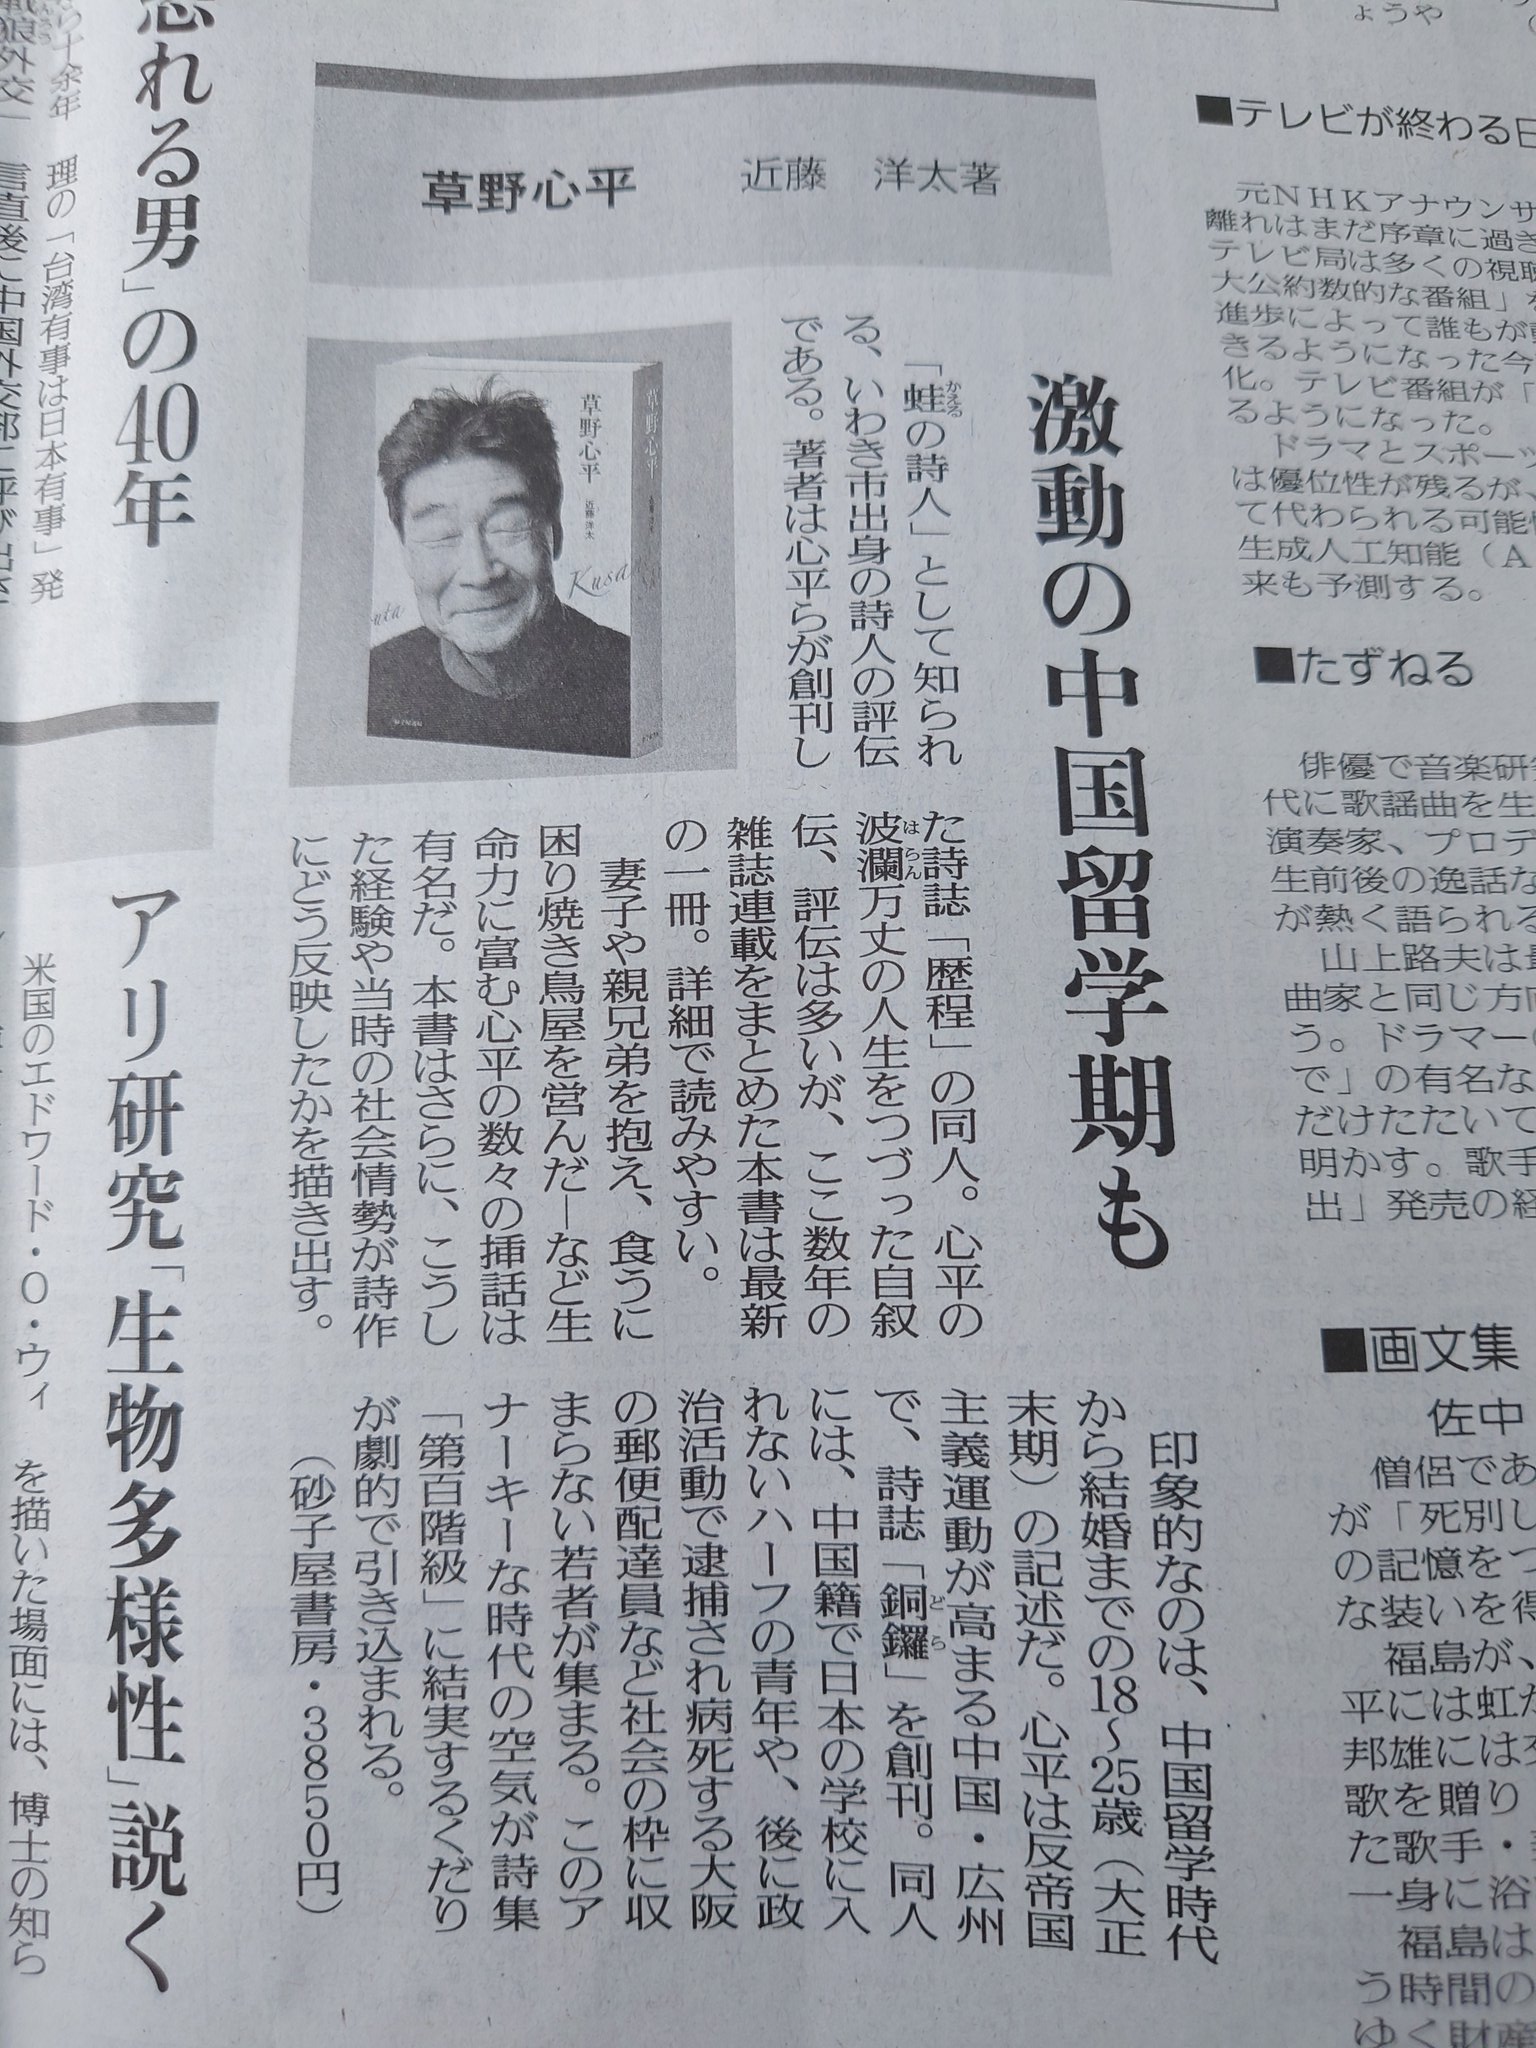 草野心平　近藤　洋太著
激動の中国留学期も
「蛙の詩人」として知られ
かえる
る、いわき市出身の詩人の評伝
である。著者は心平らが創刊し
た詩誌「歴程」の同人。心平の
波瀾万丈の人生をつづった自叙
はらん
伝、評伝は多いが、ここ数年の
雑誌連載をまとめた本書は最新
の一冊。詳細で読みやすい。
妻子や親兄弟を抱え、食うに
困り焼き鳥屋を営んだ―など生
命力に富む心平の数々の挿話は
有名だ。本書はさらに、こうし
た経験や当時の社会情勢が詩作
にどう反映したかを描き出す。
印象的なのは、中国留学時代
から結婚までの18〜25歳（大正
末期）の記述だ。心平は反帝国
主義運動が高まる中国・広州
で、詩誌「銅鑼」を創刊。同人
どら
には、中国籍で日本の学校に入
れないハーフの青年や、後に政
治活動で逮捕され病死する大阪
の郵便配達員など社会の枠に収
まらない若者が集まる。このア
ナーキーな時代の空気が詩集
「第百階級」に結実するくだり
が劇的で引き込まれる。
（砂子屋書房・3850円）
草野心平
近藤洋太
草野心平
Kusa
■テレビが終わる日
元NHKアナウンサ
離れはまだ序章に過ぎ
テレビ局は多くの視聴
大公約数的な番組」
進歩によって誰もが
きるようになった今
化。テレビ番組が「
るようになった。
ドラマとスポーツ
は優位性が残るが、
て代わられる可能性
生成人工知能（A
来も予測する。
■たずねる
俳優で音楽研
代に歌謡曲を生
演奏家、プロデ
生前後の逸話な
が熱く語られる
山上路夫は
曲家と同じ方向
う。ドラマー
で」の有名な
だけたたいて
明かす。歌手
出」発売の経
■画文集
佐中
僧侶であ
が「死別し
の記憶をつ
な装いを得
福島が、
平には虹が
邦雄には
歌を贈り
た歌手・
一身に浴
福島は
う時間の
ゆく財産
れる男」の40年
理の「台湾有事は日本有事」発
言直後に中国外交部に呼び出さ
アリ研究「生物多様性」説く
米国のエドワード・O・ウィ
を描いた場面には、博士の知ら